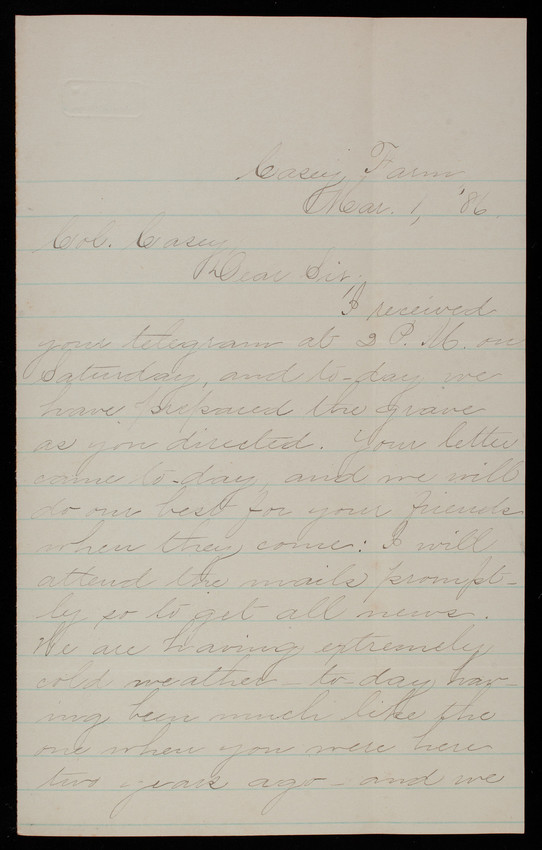 Casey Farm
Mar. 1, '86.
Col. Casey,
Dear Sir,
I received
your telegram at 2 P. M. on
Saturday, and to-day we
have prepared the grave
as you directed. Your letter
came to-day, and we will
do our best for your friends
when they come: I will
attend the mails prompt-
ly, so to get all news.
We are having extremely
cold weather - to-day hav-
ing been much like the
one when you were here
two years ago - and we